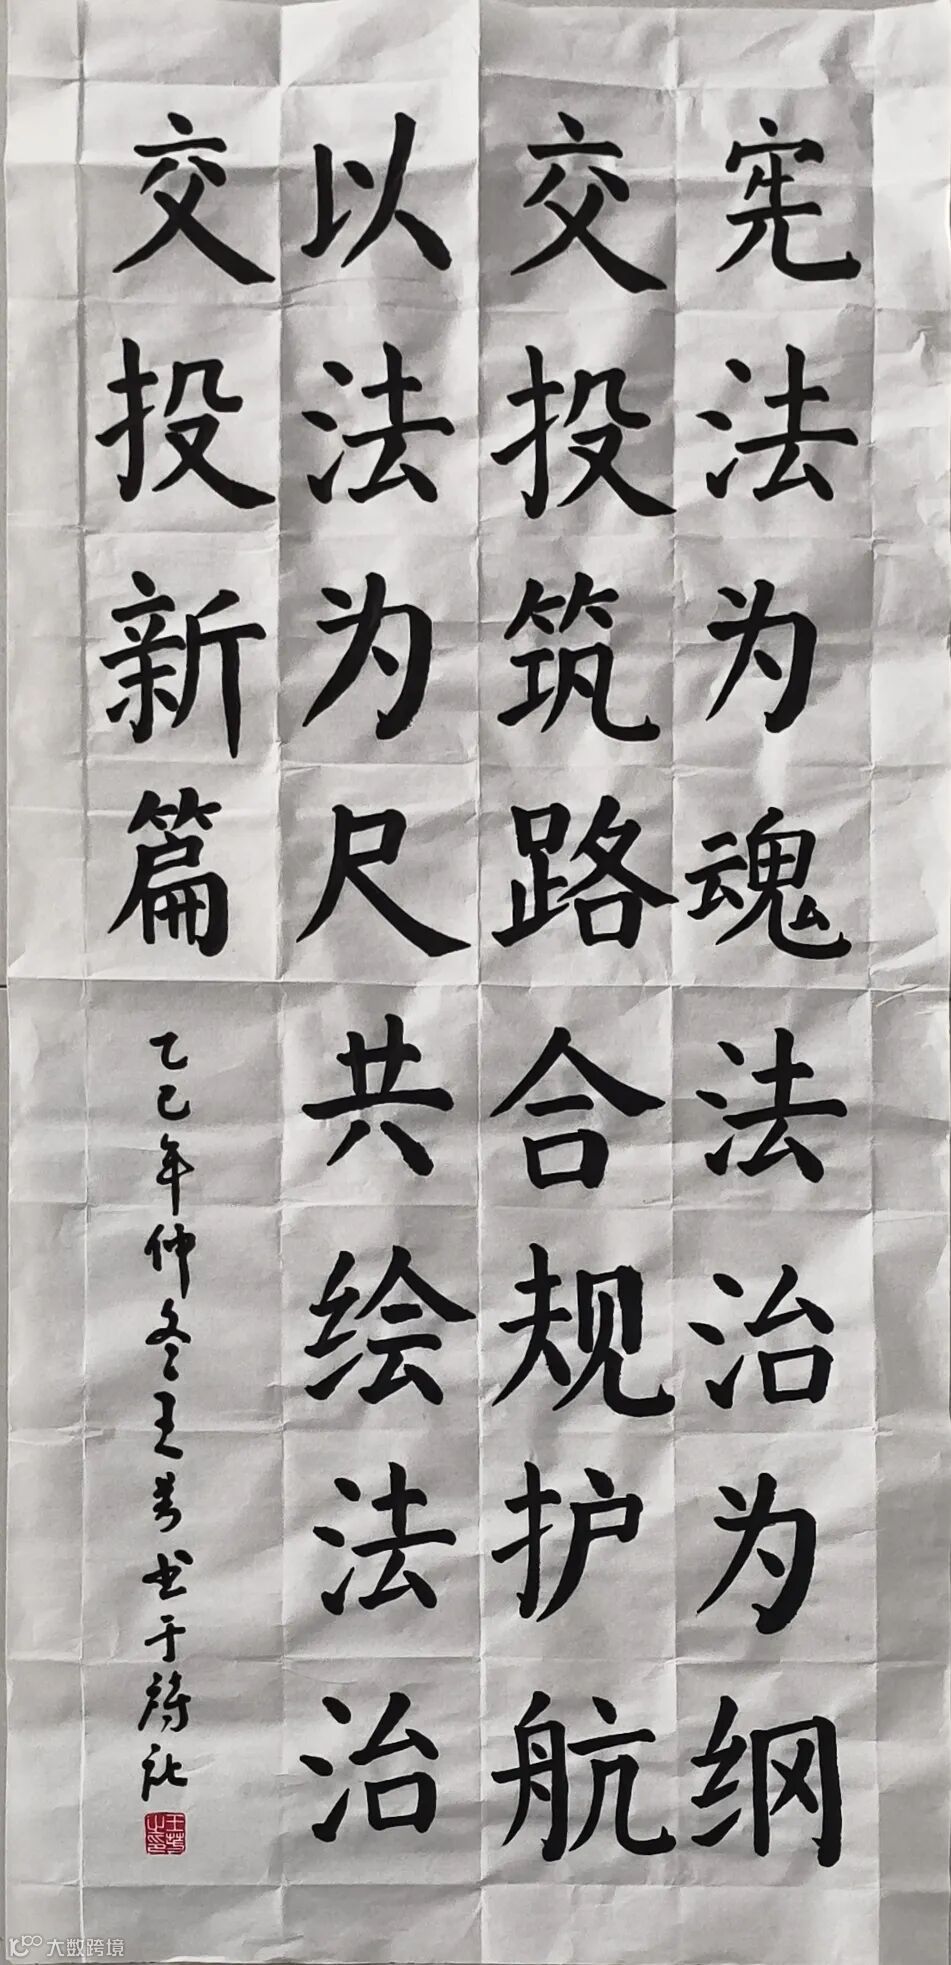 宪法为魂法治为纲
交投筑路合规护航
以法为尺共绘法治
交投新篇
乙巳年仲冬王芳书于
王芳之印
大数跨境